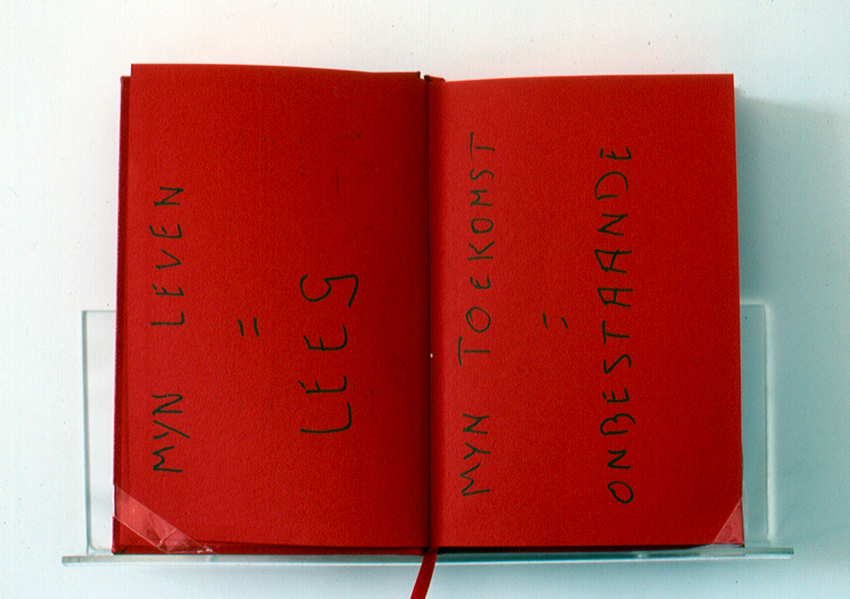 MYN LEVEN
=
LEEG
MYN TOEKOMST
=
ONBESTAANDE